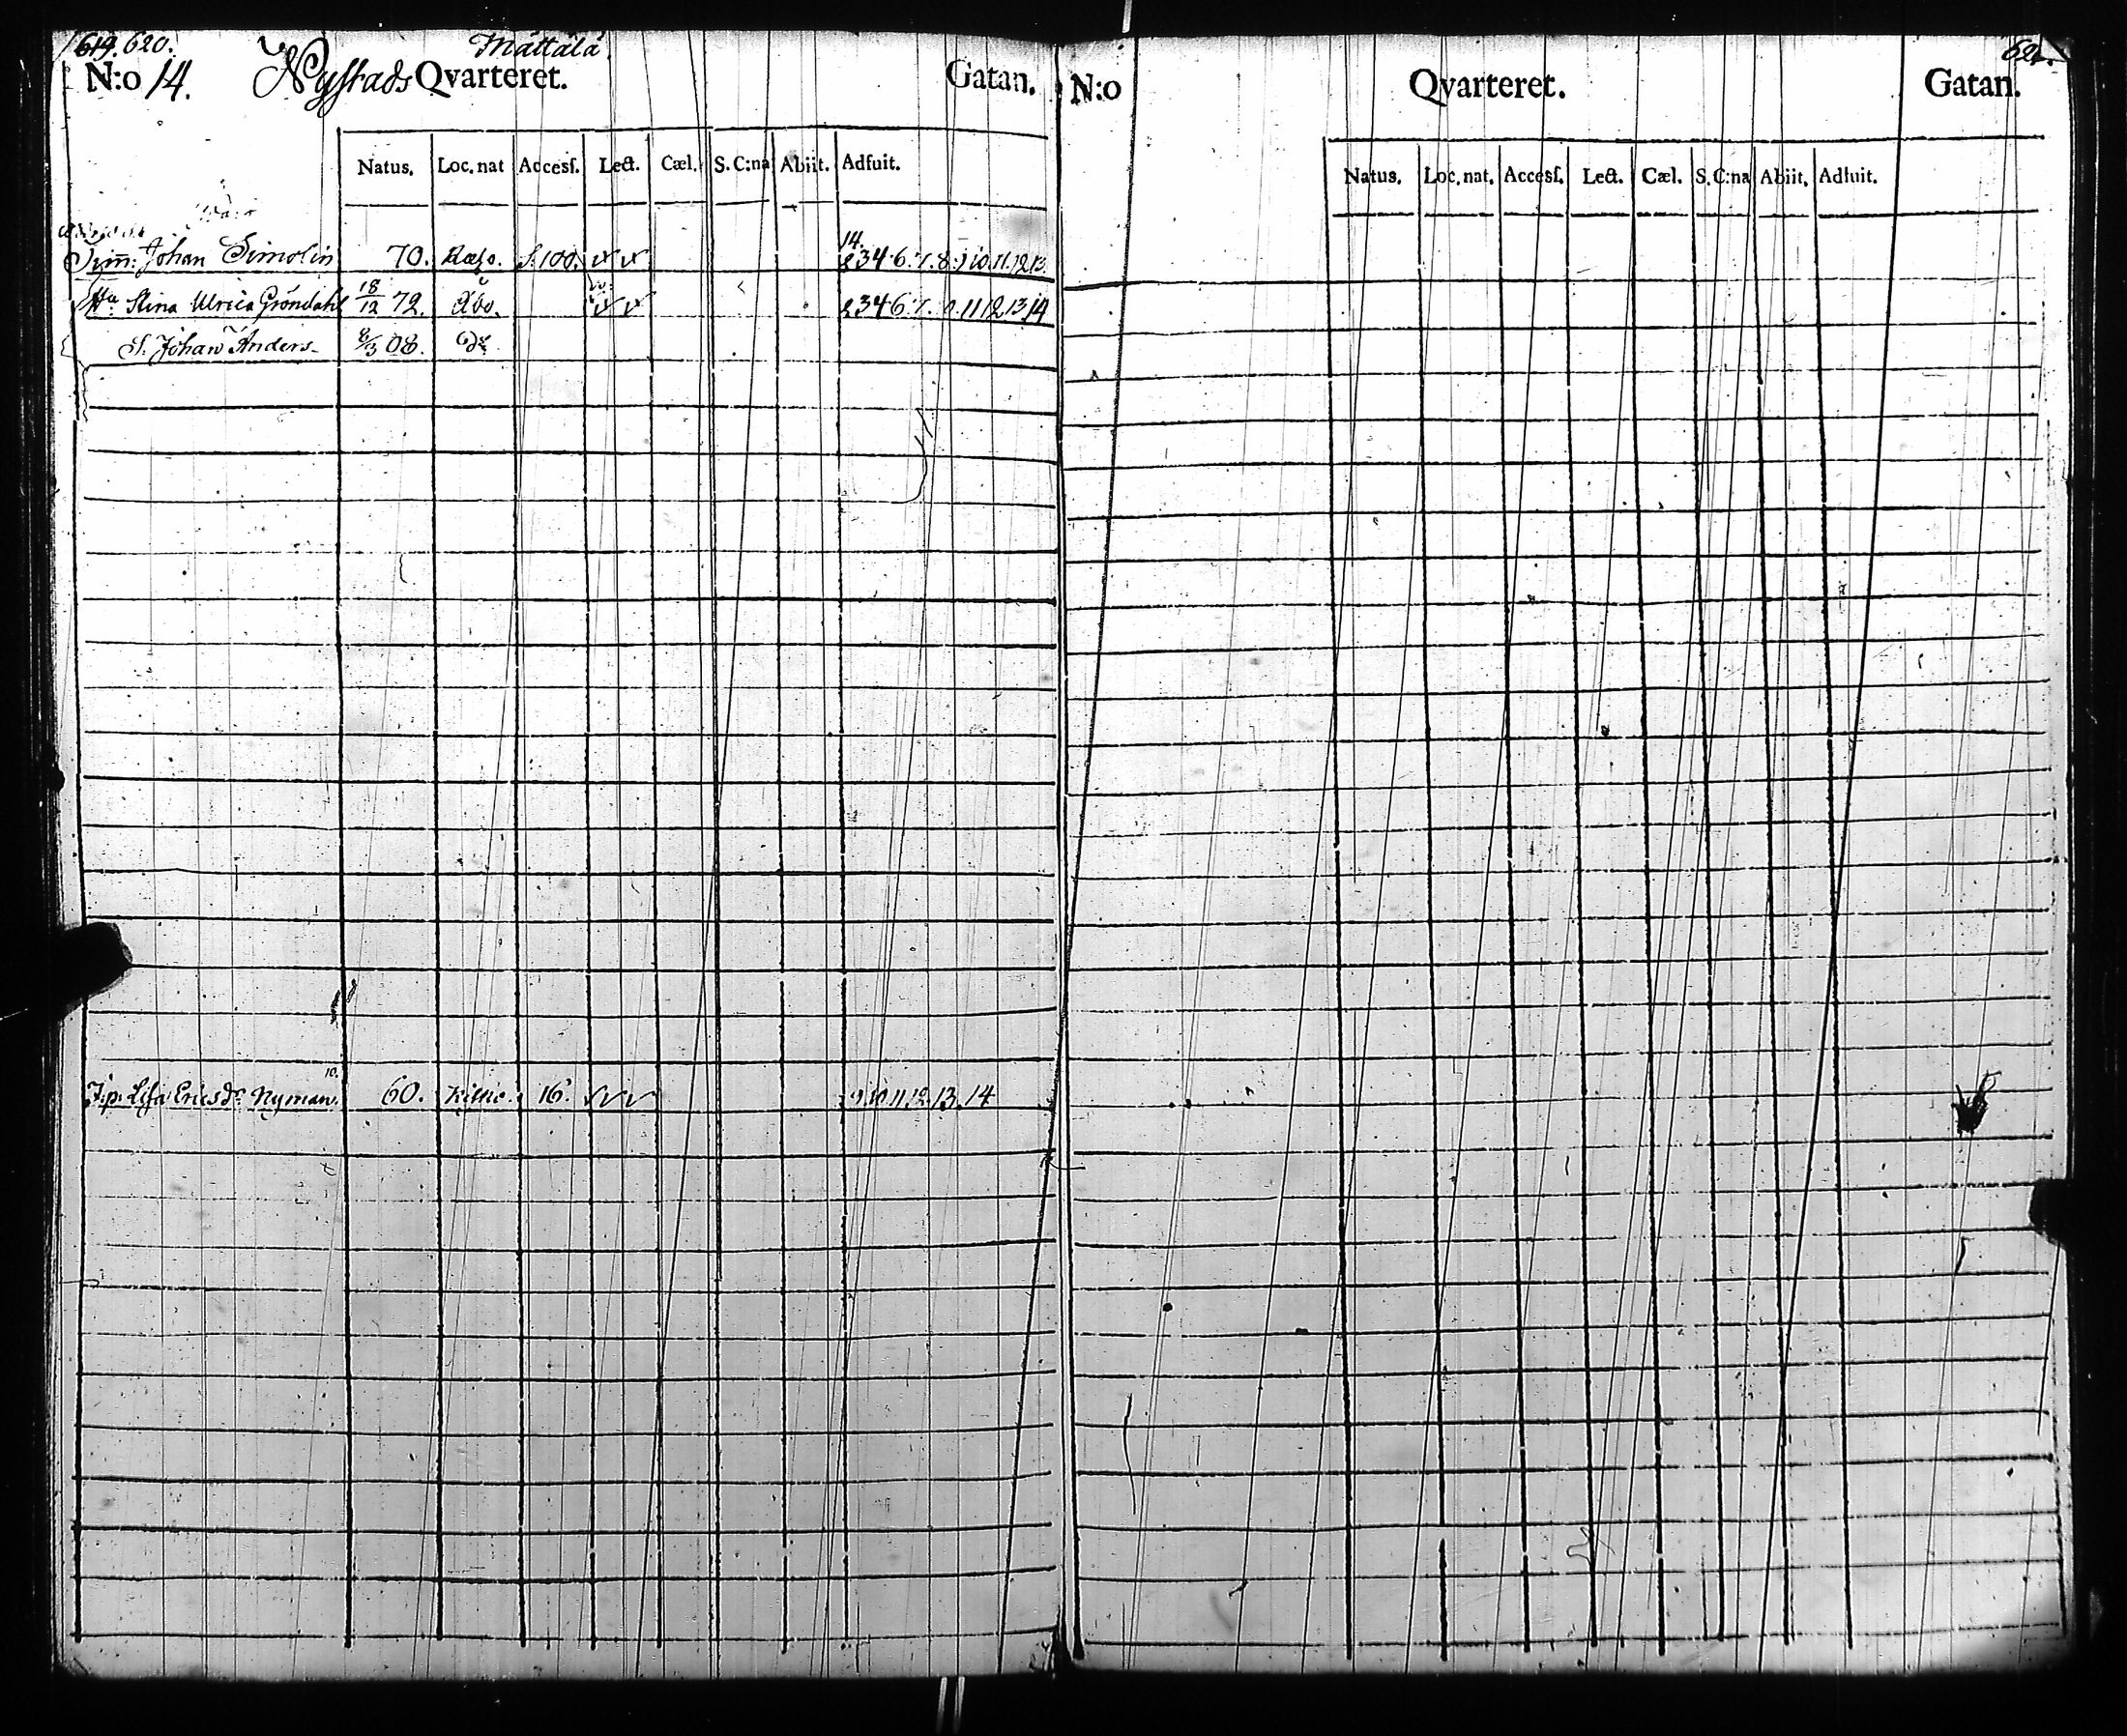 619. 620.
Mättälä
N:o 14. Nystads Qvarteret. Gatan.
Natus. Loc. nat Accesſ. Lect. Cæl. S. C:na Abiit. Adfuit.
14.
Johan Simolin 70. S. 100. 2 3 4. 6. 7. 8. 9 10. 11. 12. 13.
Hu Stina Ulrica Gröndahl 18/12 72. Åbo. 2 3 4 6. 7. 11 12 13 14
S. Johan Anders. 8/3 08.
10.
J:p. Lisa Ericsdr Nyman. 60. 16. 9. 10 11. 12. 13. 14
621.
N:o Qvarteret. Gatan.
Natus. Loc. nat. Accesſ. Lect. Cæl. S. C:na Abiit. Adfuit.